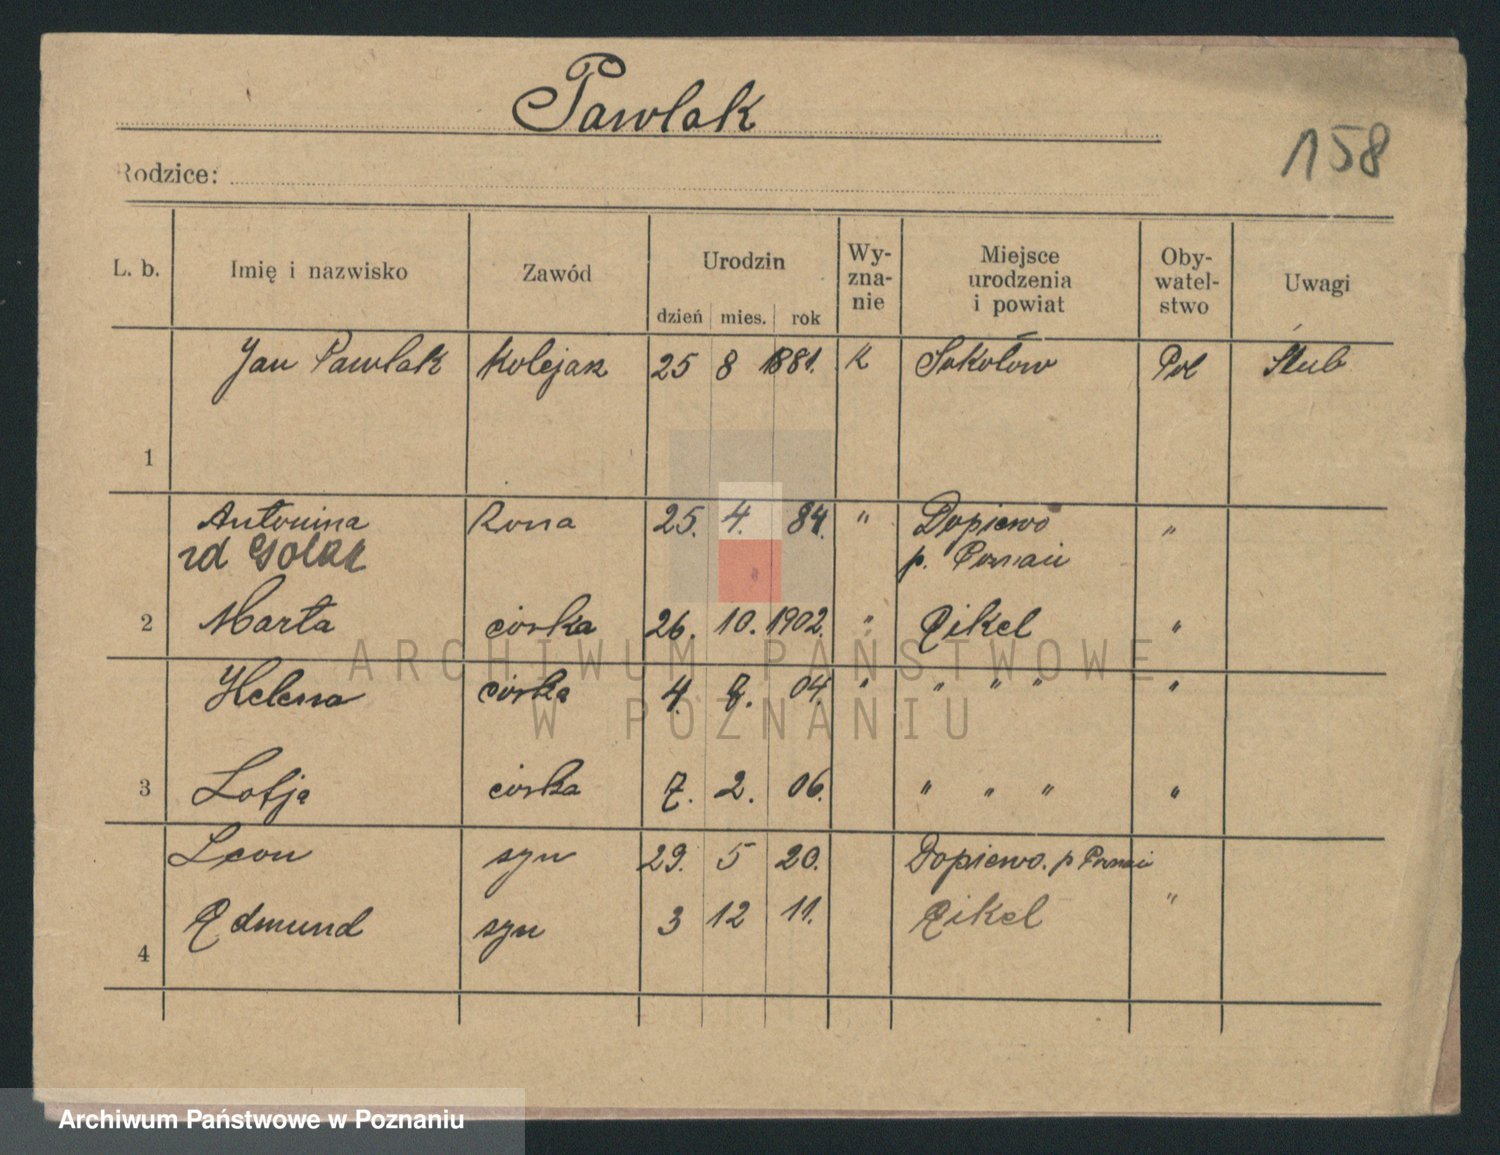 Pawlak
158
Rodzice:
L. b. Imię i nazwisko Zawód Urodzin Wy-zna-nie Miejsce urodzenia i powiat Oby-watel-stwo Uwagi
dzień mies. rok
Jan Pawlak Kolejarz 25 8 1881. K Sokołów Pol Ślub
1
Antonina żona 25. 4. 84. " Dopiewo "
zd Golak p. Poznań
2 Marta córka 26. 10. 1902. " Eikel "
Helena córka 4. 7. 04. " " " " "
3 Zofja córka 7. 2. 06. " " " "
Leon syn 29. 5 20. Dopiewo. p Poznań
Edmund syn 3 12 11. Eikel "
4
ARCHIWUM PAŃSTWOWE
W POZNANIU
Archiwum Państwowe w Poznaniu